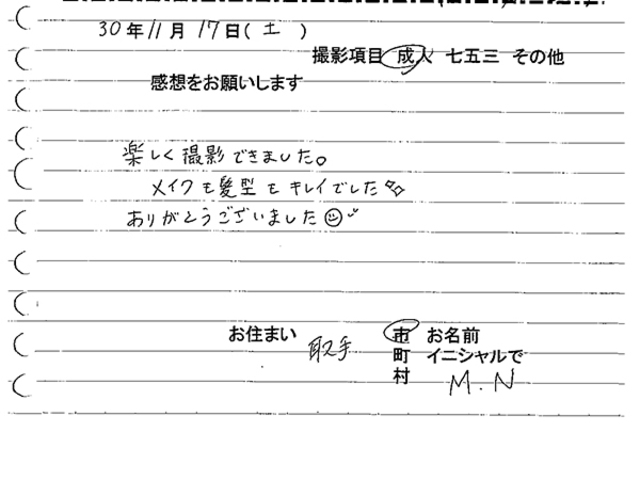 30年11月17日(土)
撮影項目 成人 七五三 その他
感想をお願いします
楽しく撮影できました。
メイクも髪型もキレイでした
ありがとうございました
お住まい 取手 市 お名前
町 イニシャルで
村 M.N